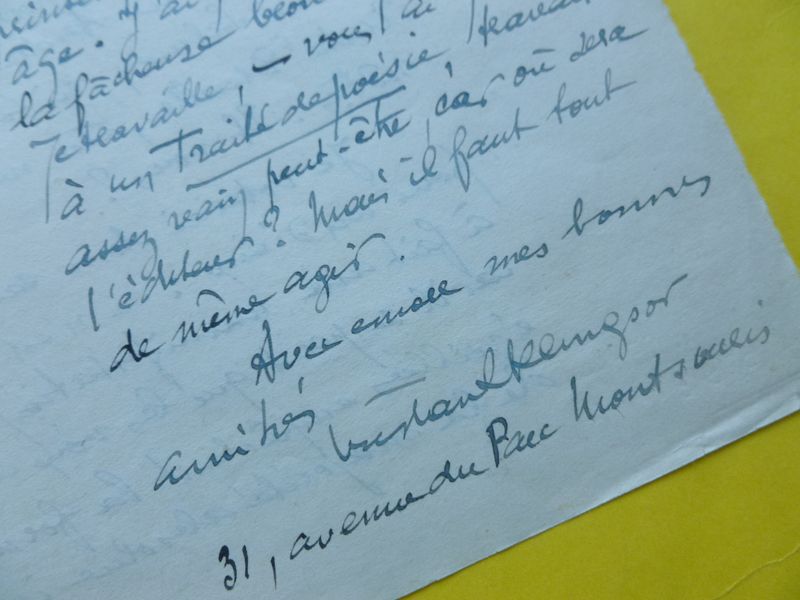 âge. J'ai
la fâcheuse
Je travaille, – vous l'ai
à un Traité de poésie, travail
assez vain peut-être, car où sera
l'éditeur ? Mais il faut tout
de même agir.
Avec encore mes bonnes
amitiés
Tristan Klingsor
31, avenue du Parc Montsouris